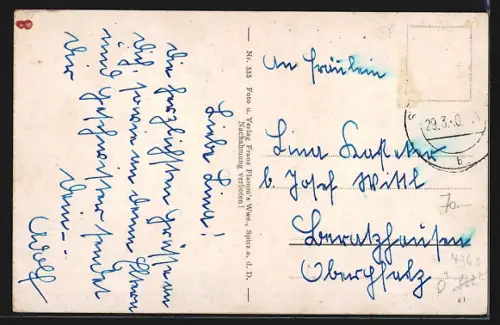 Liebe Lina!
Die herzlichsten Grüße an
Dich, sowie an deine Eltern
und Geschwister sendet
Dir
Dein -
Adolf
Nr. 555 Foto u. Verlag Franz Flamm's Wwe., Spitz a. d. D.
Nachahmung verboten!
An Fräulein
Lina
b. Josef Wittl
Beratzhausen
Oberpfalz
29.3.40
b
70.-
87
8